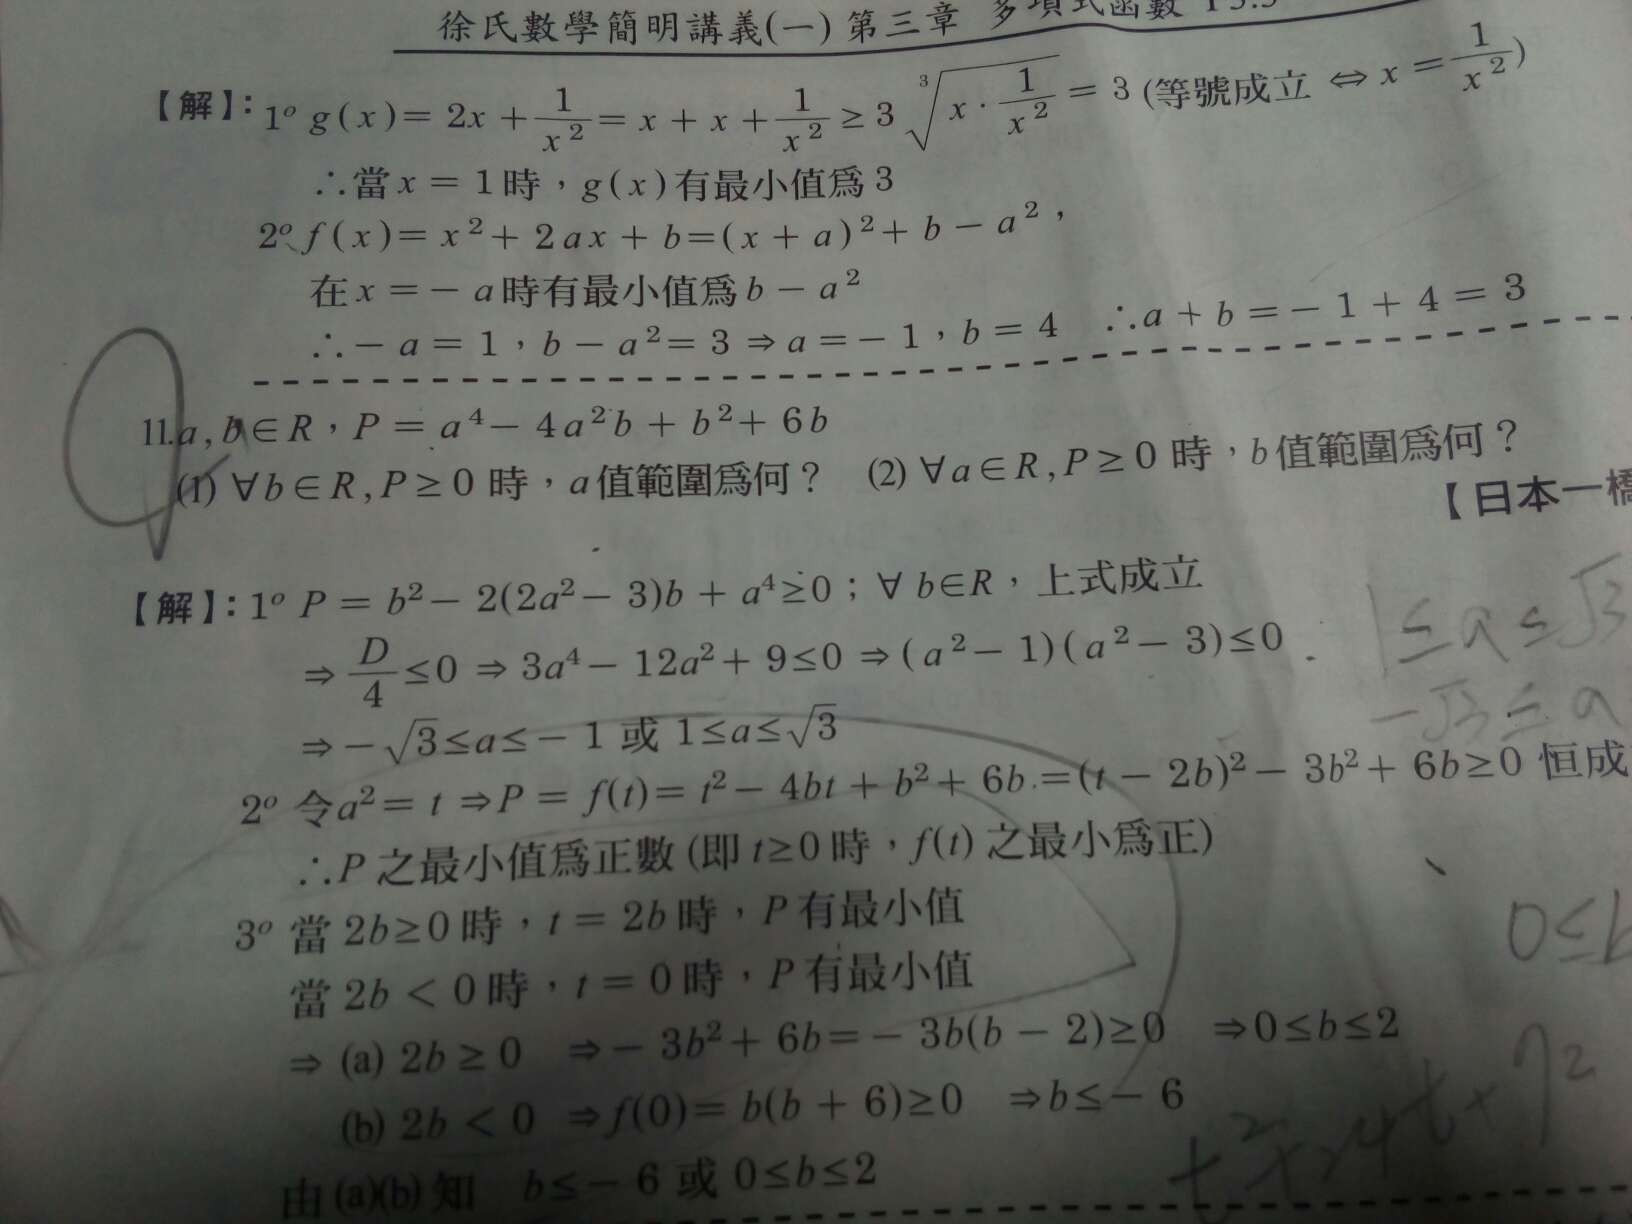 徐氏數學簡明講義(一) 第三章 多項式函數
【解】：1° g(x)= 2x + 1/x² = x + x + 1/x² ≥ 3 ∛(x · 1/x²) = 3 (等號成立 ⇔ x = 1/x²)
∴當 x = 1 時，g(x) 有最小值為 3
2° f(x)= x² + 2ax + b=(x + a)² + b − a²，
在 x = − a 時有最小值為 b − a²
∴− a = 1，b − a² = 3 ⇒ a = − 1，b = 4 ∴a + b = − 1 + 4 = 3
11. a, b ∈ R，P = a⁴ − 4a²b + b² + 6b
(1) ∀b ∈ R, P ≥ 0 時，a 值範圍為何？ (2) ∀a ∈ R, P ≥ 0 時，b 值範圍為何？
【日本一橋
【解】：1° P = b² − 2(2a² − 3)b + a⁴ ≥ 0；∀ b∈R，上式成立
1 ≤ a ≤ √3
⇒ D/4 ≤ 0 ⇒ 3a⁴ − 12a² + 9 ≤ 0 ⇒ (a² − 1)(a² − 3) ≤ 0
−√3 ≤ a
⇒ − √3 ≤ a ≤ − 1 或 1 ≤ a ≤ √3
2° 令 a² = t ⇒ P = f(t)= t² − 4bt + b² + 6b =(t − 2b)² − 3b² + 6b ≥ 0 恒成
∴P 之最小值為正數 (即 t≥0 時，f(t) 之最小為正)
3° 當 2b≥0 時，t = 2b 時，P 有最小值
0 ≤ b
當 2b < 0 時，t = 0 時，P 有最小值
⇒ (a) 2b ≥ 0 ⇒ − 3b² + 6b = − 3b(b − 2) ≥ 0 ⇒ 0 ≤ b ≤ 2
(b) 2b < 0 ⇒ f(0)= b(b + 6) ≥ 0 ⇒ b ≤ − 6
由 (a)(b) 知 b ≤ − 6 或 0 ≤ b ≤ 2